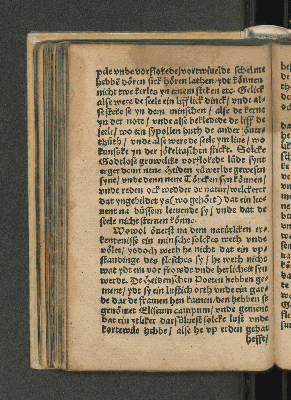 pde vnde vorflokede / vortwiuelde schelme
hebbē dören sick hören lathen / yde können
nicht twe kerles yn einem stiken etc. Gelick
alse were de seele ein liff lick dinck / vnde als
stekede se yn dem minschen / alse de kerne
yn der note / vnde alse bekledede de liff de
seele / wo ein sypollen huth de ander
thüth / vnde alse were de seele ym liue / wo
Solcke
Godtlose gruwelike vorflokede lüde synt
erger denn nene Heiden yewerlde gewesen
synt / vnde denn nene Törcken syn können /
vnde reden ock wedder de natur / welckerer
dat yngebildet ys (wo gehört) dat ein leuent
na düssem leuende sy / vnde dat de
seele nicht steruen könne.
Wowol överst na dem natürliken erkentenisse
ein minsche solckes weth vnde
völet / ysdoch weth he nicht dat ein vpstandinge
des flesches sy / he weth nicht
wat ydt ein vor frowde vnde herlicheit syn
werde. De Heidenischen Poeten hebben gemenet /
yde sy ein lustich orth vnde ein garde
dar de framen hen kamen / den hebben se
genömet Elisium campum / vnde gemenet
dat ein yelker darsüluest solcke lust vnde
kortewile hebbe / alse he vp erden gehat
hefft /